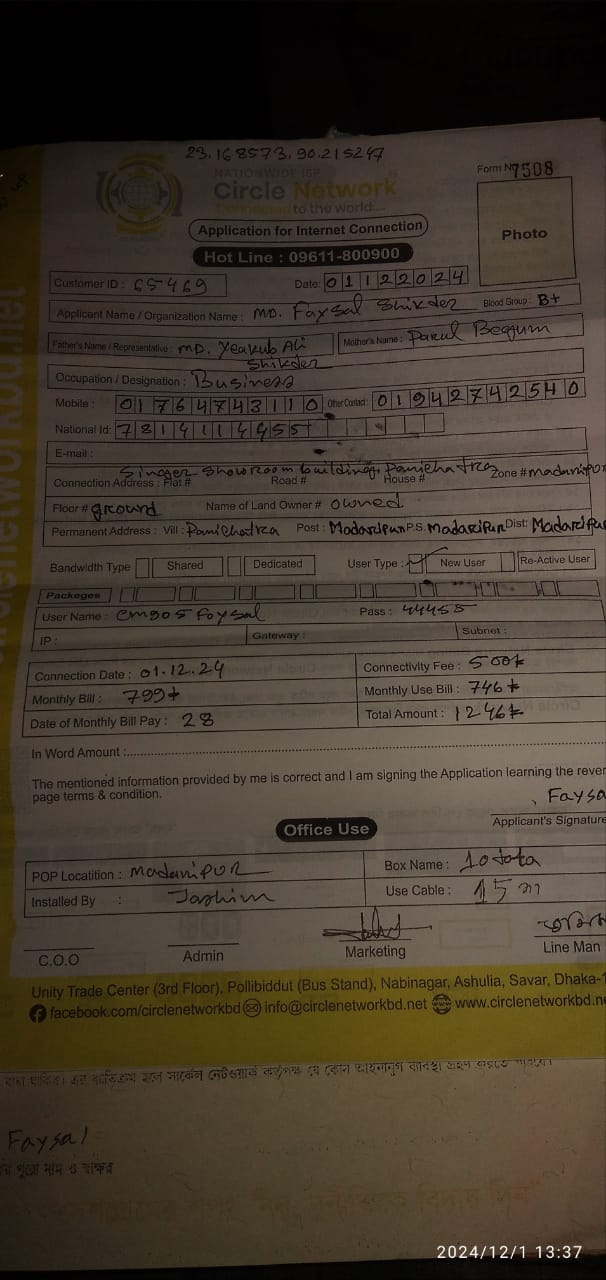 23.168573, 90.215247
NATIONWIDE ISP
Circle Network
Connected to the world...
Form No 7508
Application for Internet Connection
Photo
Hot Line : 09611-800900
Customer ID : 65469 Date: 01122024
Applicant Name / Organization Name : MD. Faysal Shikder Blood Group : B+
Father's Name / Representative : MD. Yeakub Ali Shikder Mother's Name : Parul Begum
Occupation / Designation : Business
Mobile : 01764743110 Other Contact : 01942742540
National Id: 7814114455
E-mail :
Singer Showroom building, Panichatra
Connection Address : Flat # Road # House # Zone # madaripur
Floor # ground Name of Land Owner # owned
Permanent Address : Vill : Panichatra Post : Madaripur P.S. Madaripur Dist: Madaripur
Bandwidth Type Shared Dedicated User Type : New User Re-Active User
Packeges
User Name : cm905 Foysal Pass : 44455
IP : Gateway : Subnet :
Connection Date : 01.12.24 Connectivity Fee : 500৳
Monthly Bill : 799৳ Monthly Use Bill : 746৳
Date of Monthly Bill Pay : 28 Total Amount : 1246৳
In Word Amount :
The mentioned information provided by me is correct and I am signing the Application learning the rever
page terms & condition.
Faysa
Applicant's Signature
Office Use
POP Locatition : Madaripur Box Name : 10 tota
Installed By : Jashim Use Cable : 15 m
C.O.O Admin Marketing Line Man
Unity Trade Center (3rd Floor), Pollibiddut (Bus Stand), Nabinagar, Ashulia, Savar, Dhaka-1
facebook.com/circlenetworkbd info@circlenetworkbd.net www.circlenetworkbd.ne
Faysal
2024/12/1 13:37